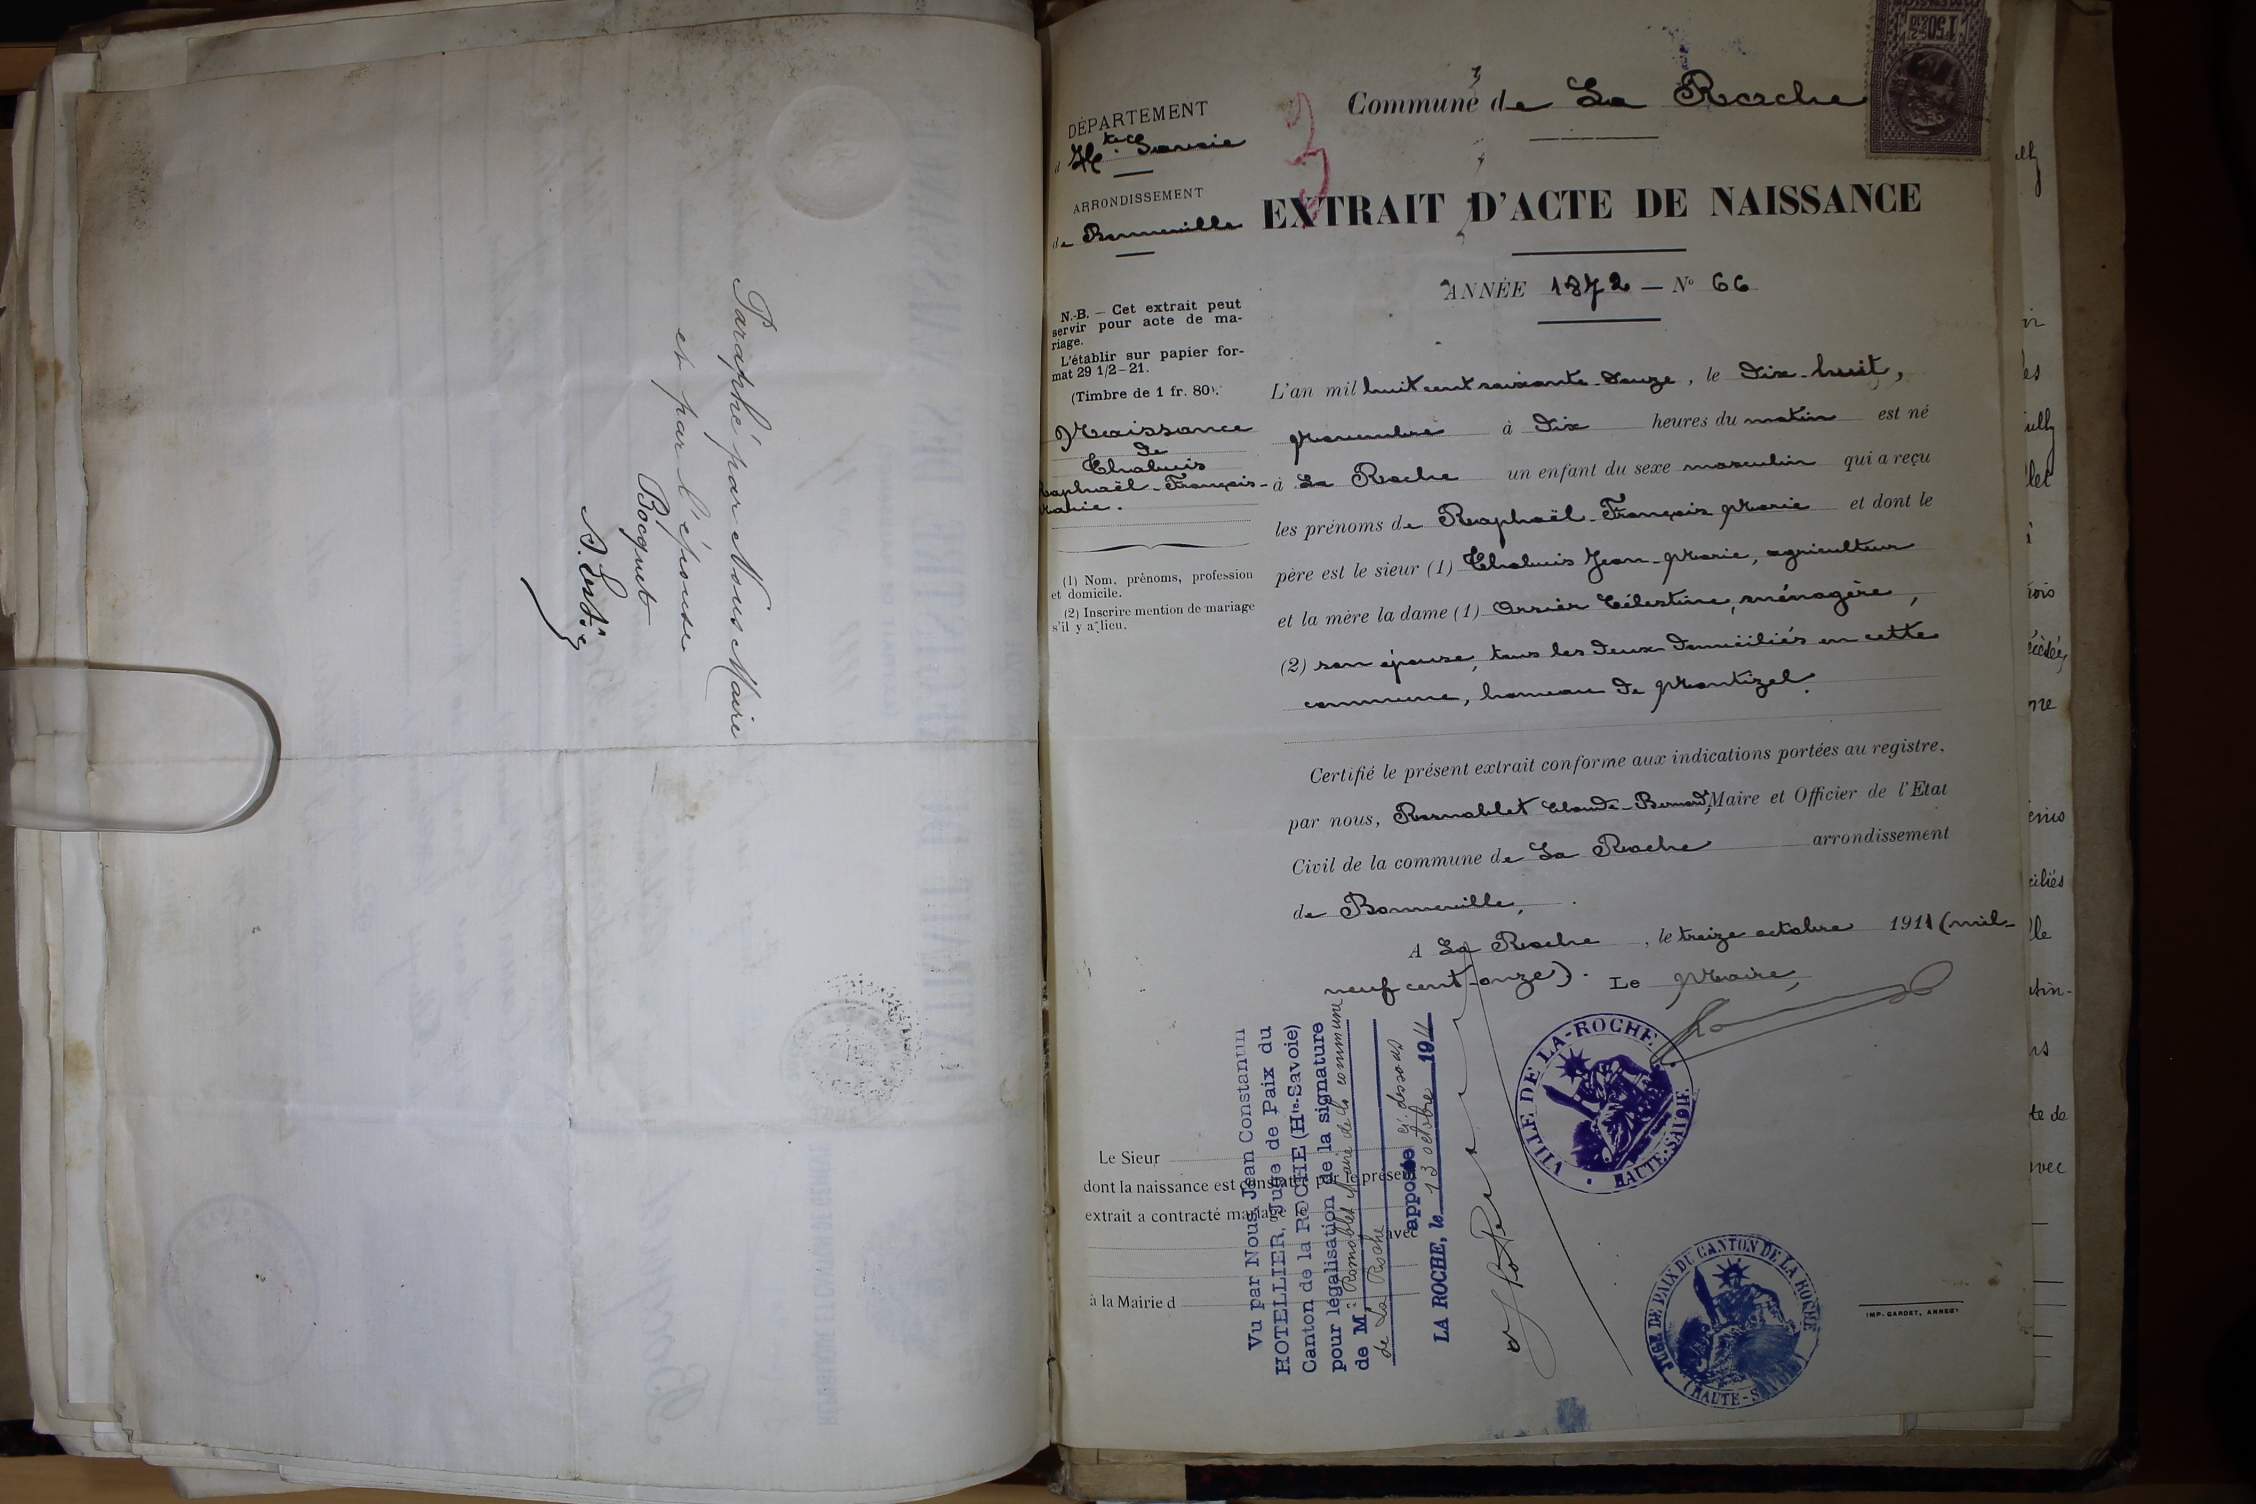 Paraphé par Nous Maire
et par l'épouse
Bocquet
DÉPARTEMENT
d Hte Savoie
ARRONDISSEMENT
de Bonneville
N.-B. — Cet extrait peut
servir pour acte de ma-
riage.
L'établir sur papier for-
mat 29 1/2-21.
(Timbre de 1 fr. 80).
Naissance
de
Chaluis
Raphaël-François-
Marie.
(1) Nom, prénoms, profession
et domicile.
(2) Inscrire mention de mariage
s'il y a lieu.
Commune de La Roche
EXTRAIT D'ACTE DE NAISSANCE
ANNÉE 1872 — N° 66
L'an mil huit cent soixante-douze, le dix-huit,
Novembre à dix heures du matin est né
à La Roche un enfant du sexe masculin qui a reçu
les prénoms de Raphaël-François Marie et dont le
père est le sieur (1) Chaluis Jean-Marie, agriculteur
et la mère la dame (1) Célestine, ménagère,
(2) son épouse, tous les deux domiciliés en cette
commune, hameau de Montizel.
Certifié le présent extrait conforme aux indications portées au registre.
par nous, Claude-Bernard, Maire et Officier de l'Etat
Civil de la commune de La Roche arrondissement
de Bonneville,
A La Roche, le treize octobre 1911 (mil-
neuf cent onze). Le Maire,
VILLE DE LA-ROCHE
HAUTE-SAVOIE
Vu par Nous, Jean Constantin
HOTELLIER, Juge de Paix du
Canton de la ROCHE (Hte-Savoie)
pour légalisation de la signature
de M. Maire de la commune
de La Roche
apposée ci-dessous
LA ROCHE, le 13 octobre 1911
Le Sieur
dont la naissance est constatée par le présent
extrait a contracté mariage le
avec
à la Mairie d
JUGE DE PAIX DU CANTON DE LA ROCHE
(HAUTE-SAVOIE)
IMP. GARDET, ANNECY